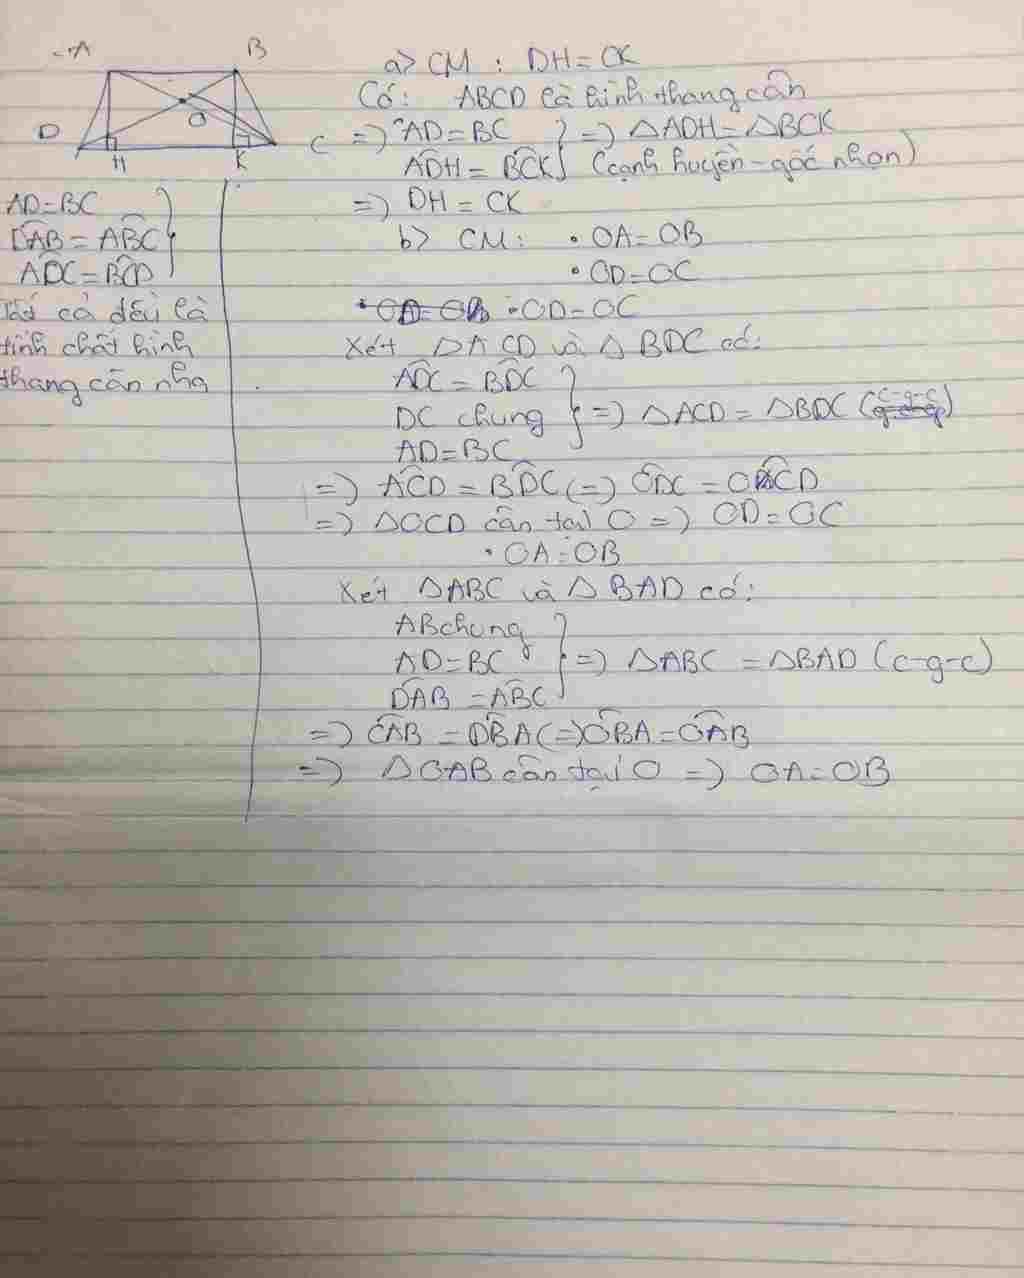 A B
D O C
H K
AD=BC
DAB = ABC
ADC=BCD
Tất cả đều là
tính chất hình
thang cân nha
a> CM : DH=CK
Có: ABCD là hình thang cân
=> AD=BC } => △ADH=△BCK
ADH = BCK } (cạnh huyền-góc nhọn)
=> DH=CK
b> CM: • OA=OB
• OD=OC
• OD=OC
Xét △ACD và △BDC có:
ADC = BDC
DC chung } => △ACD = △BDC (c-g-c)
AD=BC
=> ACD = BDC (=) ODC = OCD
=> △OCD cân tại O => OD=OC
• OA=OB
Xét △ABC và △BAD có:
AB chung
AD=BC } => △ABC = △BAD (c-g-c)
DAB = ABC
=> CAB = DBA (=) OBA=OAB
=> △OAB cân tại O => OA=OB